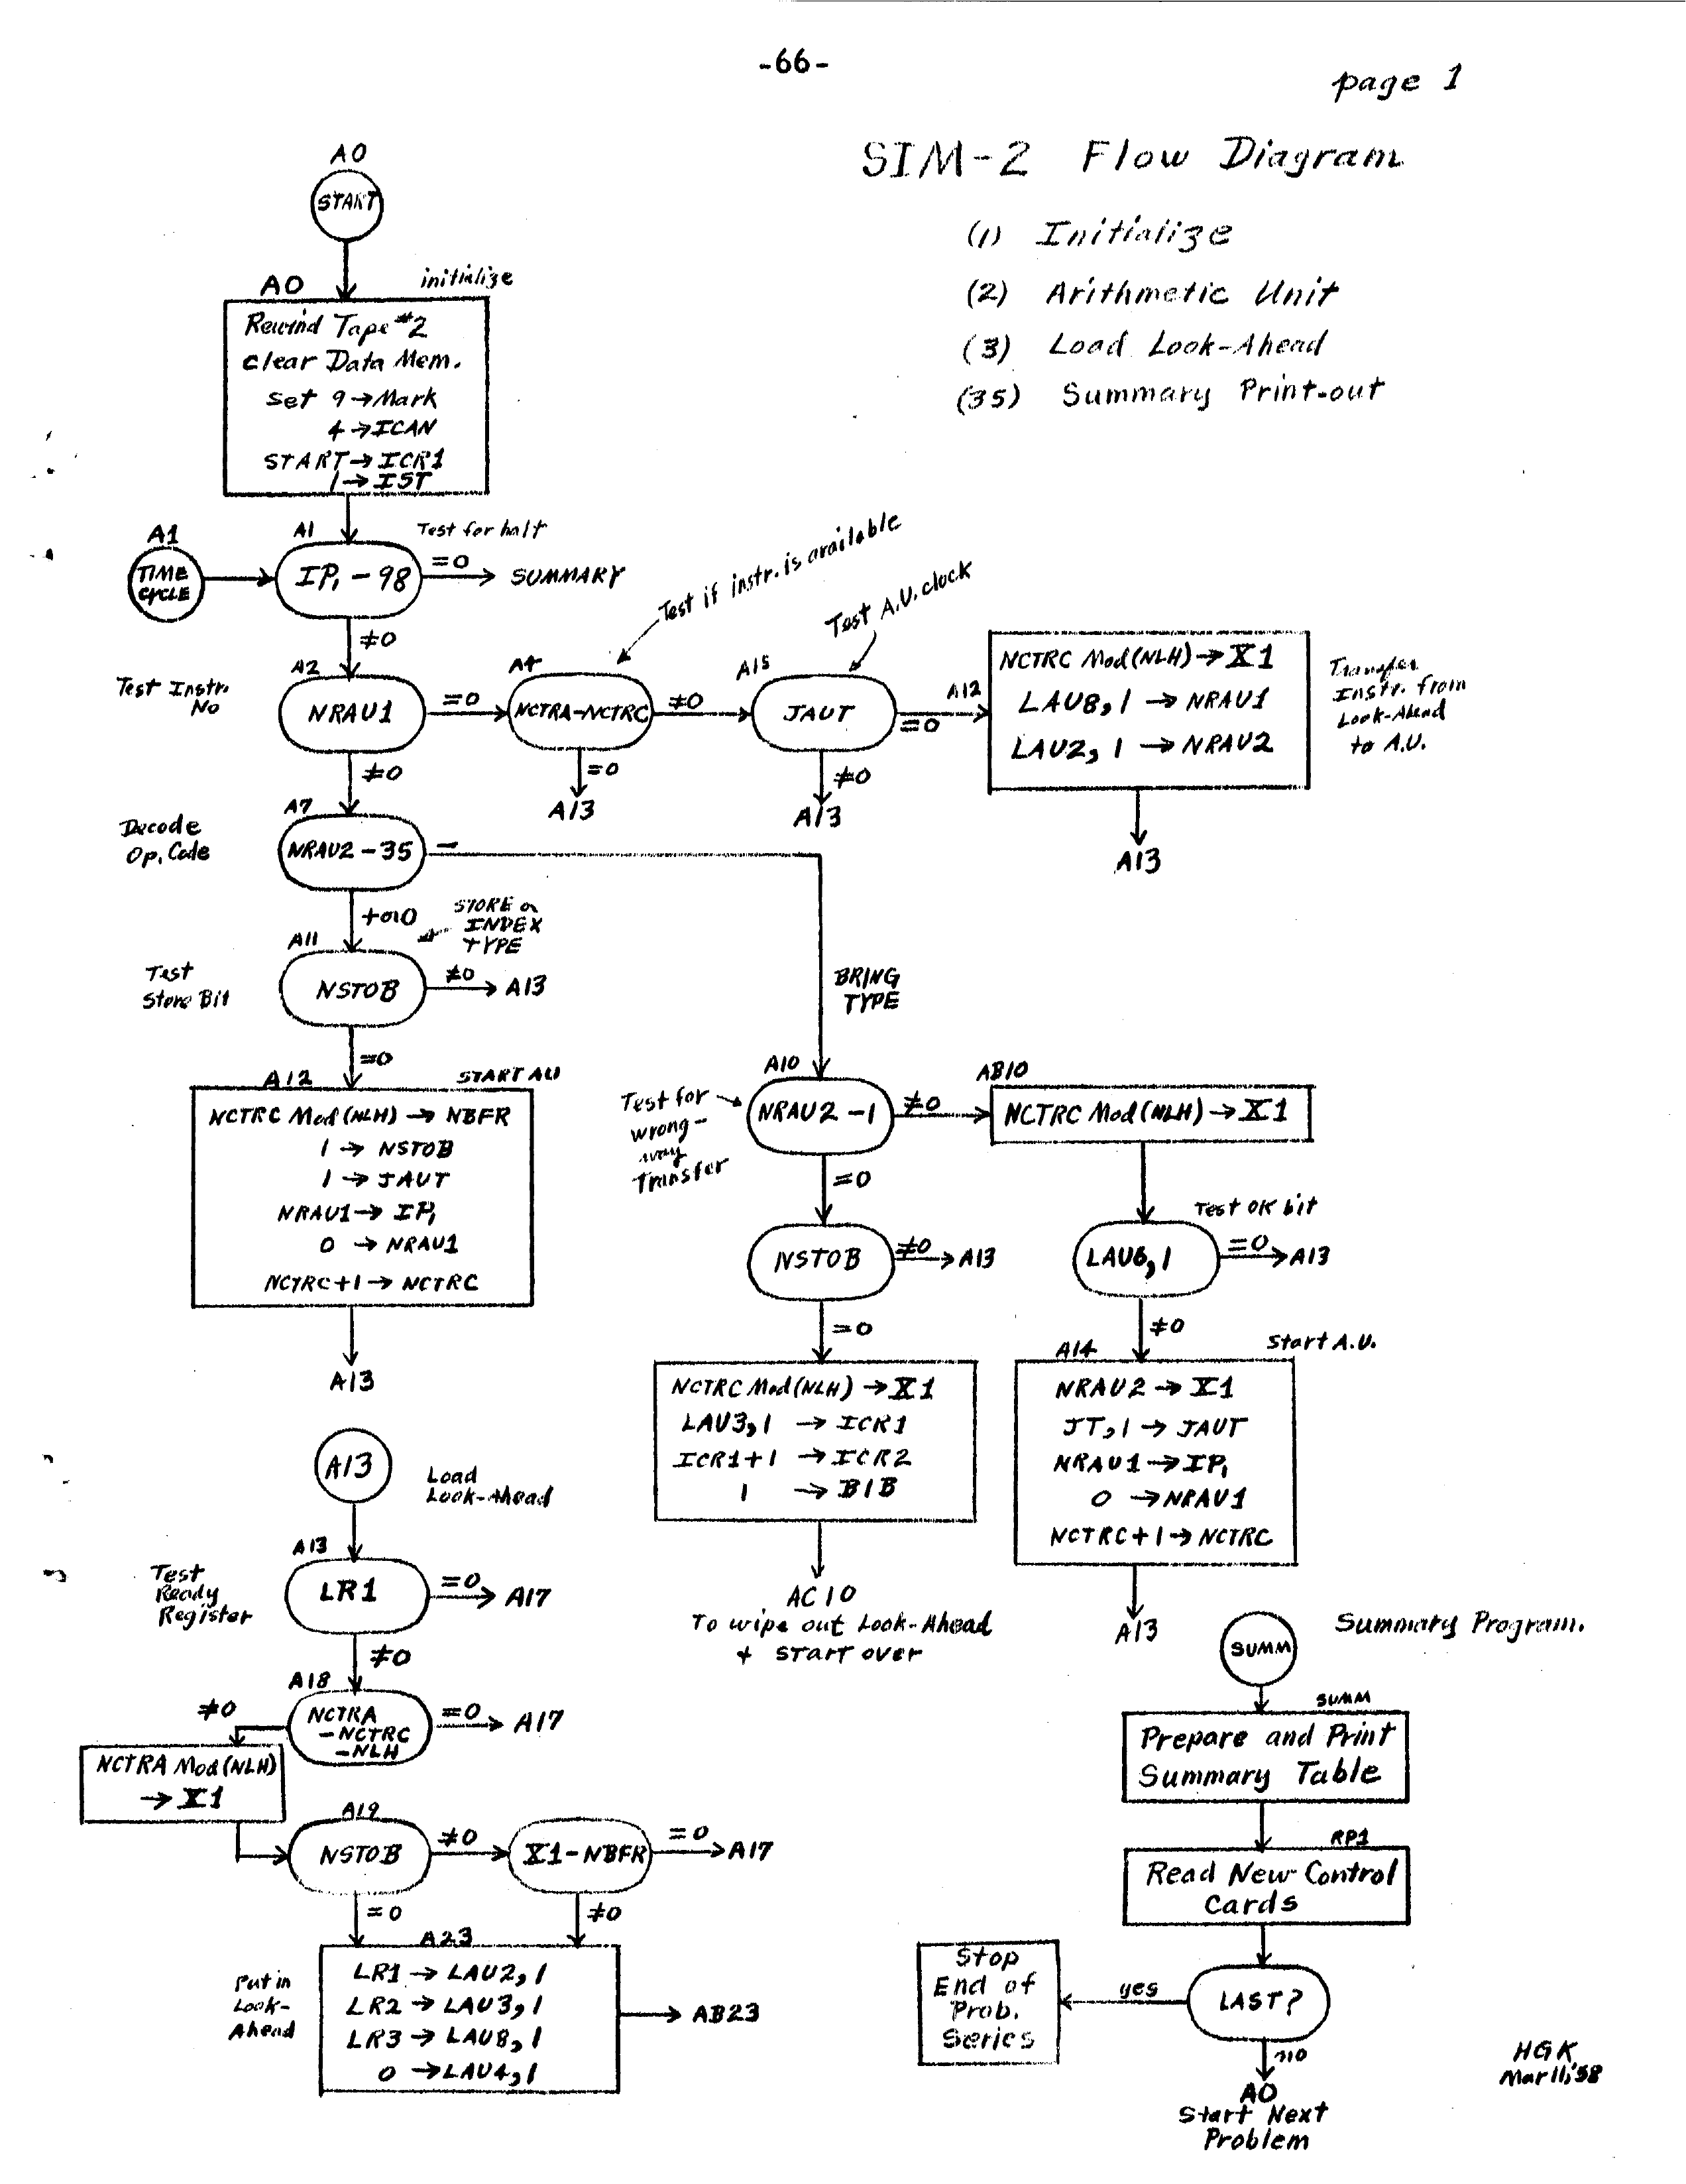 -66-
page 1
SIM-2 Flow Diagram
(1) Initialize
(2) Arithmetic Unit
(3) Load Look-Ahead
(35) Summary Print-out
A0
START
A0
initialize
Rewind Tape #2
clear Data Mem.
set 9→Mark
4→ICAN
START→ICR1
1→IST
A1
TIME
CYCLE
A1
Test for halt
IP₁-98
=0
SUMMARY
≠0
Test Instr.
No
A2
NRAU1
=0
Test if instr. is available
A4
NCTRA-NCTRC
≠0
=0
A13
Test A.U. clock
A15
JAUT
A12
=0
≠0
A13
NCTRC Mod(NLH)→X1
LAU8,1→NRAU1
LAU2,1→NRAU2
Transfer
Instr. from
Look-Ahead
to A.U.
A13
≠0
Decode
Op. Code
A7
NRAU2-35
-
+or0
STORE or
INDEX
TYPE
BRING
TYPE
Test
Store Bit
A11
NSTOB
≠0
A13
=0
A12
START AU
NCTRC Mod(NLH)→NBFR
1→NSTOB
1→JAUT
NRAU1→IP₁
0→NRAU1
NCTRC+1→NCTRC
A13
Test for
wrong-
way
Transfer
A10
NRAU2-1
≠0
=0
AB10
NCTRC Mod(NLH)→X1
NSTOB
≠0
A13
=0
Test OK bit
LAU6,1
=0
A13
≠0
NCTRC Mod(NLH)→X1
LAU3,1→ICR1
ICR1+1→ICR2
1→BIB
AC10
To wipe out Look-Ahead
+ START over
A14
Start A.U.
NRAU2→X1
JT,1→JAUT
NRAU1→IP₁
0→NRAU1
NCTRC+1→NCTRC
A13
A13
Load
Look-Ahead
Test
Ready
Register
A13
LR1
=0
A17
≠0
A18
NCTRA
-NCTRC
-NLH
=0
A17
≠0
NCTRA Mod(NLH)
→X1
A19
NSTOB
≠0
X1-NBFR
=0
A17
=0
≠0
Put in
Look-
Ahead
A23
LR1→LAU2,1
LR2→LAU3,1
LR3→LAU8,1
0→LAU4,1
AB23
SUMM
Summary Program.
SUMM
Prepare and Print
Summary Table
RP1
Read New Control
Cards
LAST?
yes
Stop
End of
Prob.
Series
no
A0
Start Next
Problem
HGK
Mar 11,'58